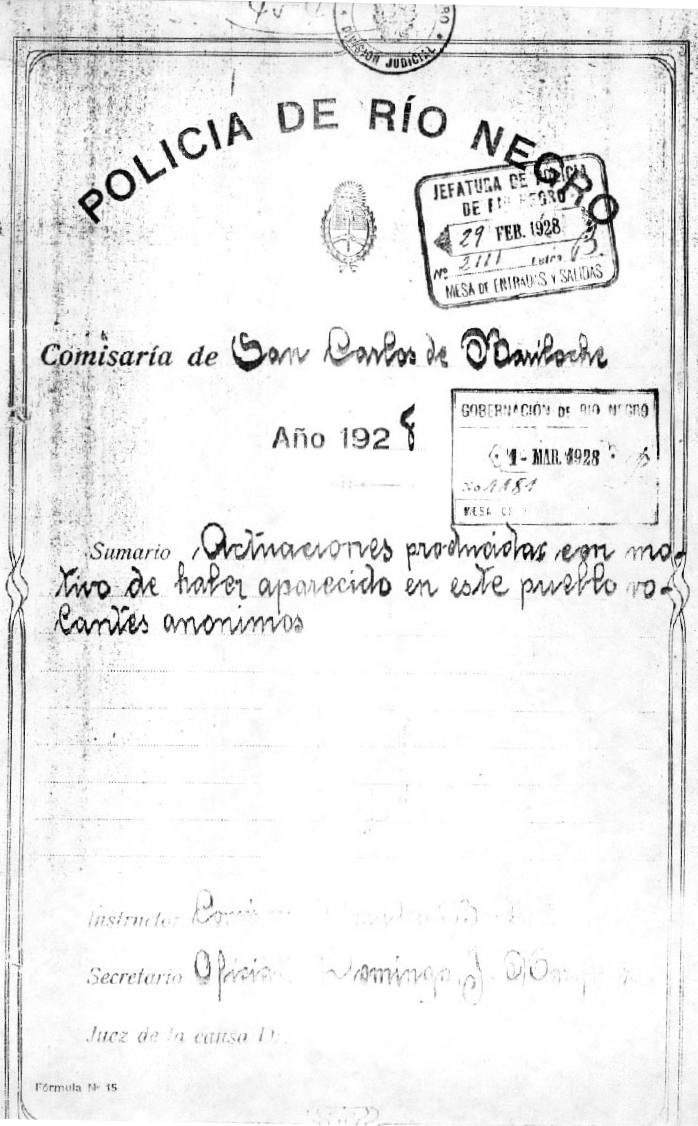 DIVISIÓN JUDICIAL
POLICIA DE RÍO NEGRO
JEFATURA DE POLICIA
DE RIO NEGRO
29 FEB. 1928
Nº 2111 Letra B
MESA DE ENTRADAS Y SALIDAS
Comisaría de San Carlos de Bariloche
Año 1928
GOBERNACIÓN DE RIO NEGRO
1- MAR. 1928
No 1181
MESA DE
Sumario Actuaciones producidas con mo-
tivo de haber aparecido en este pueblo vo-
lantes anonimos
Instructor
Secretario Oficial Domingo J.
Juez de la causa Dr.
Fórmula Nº 15